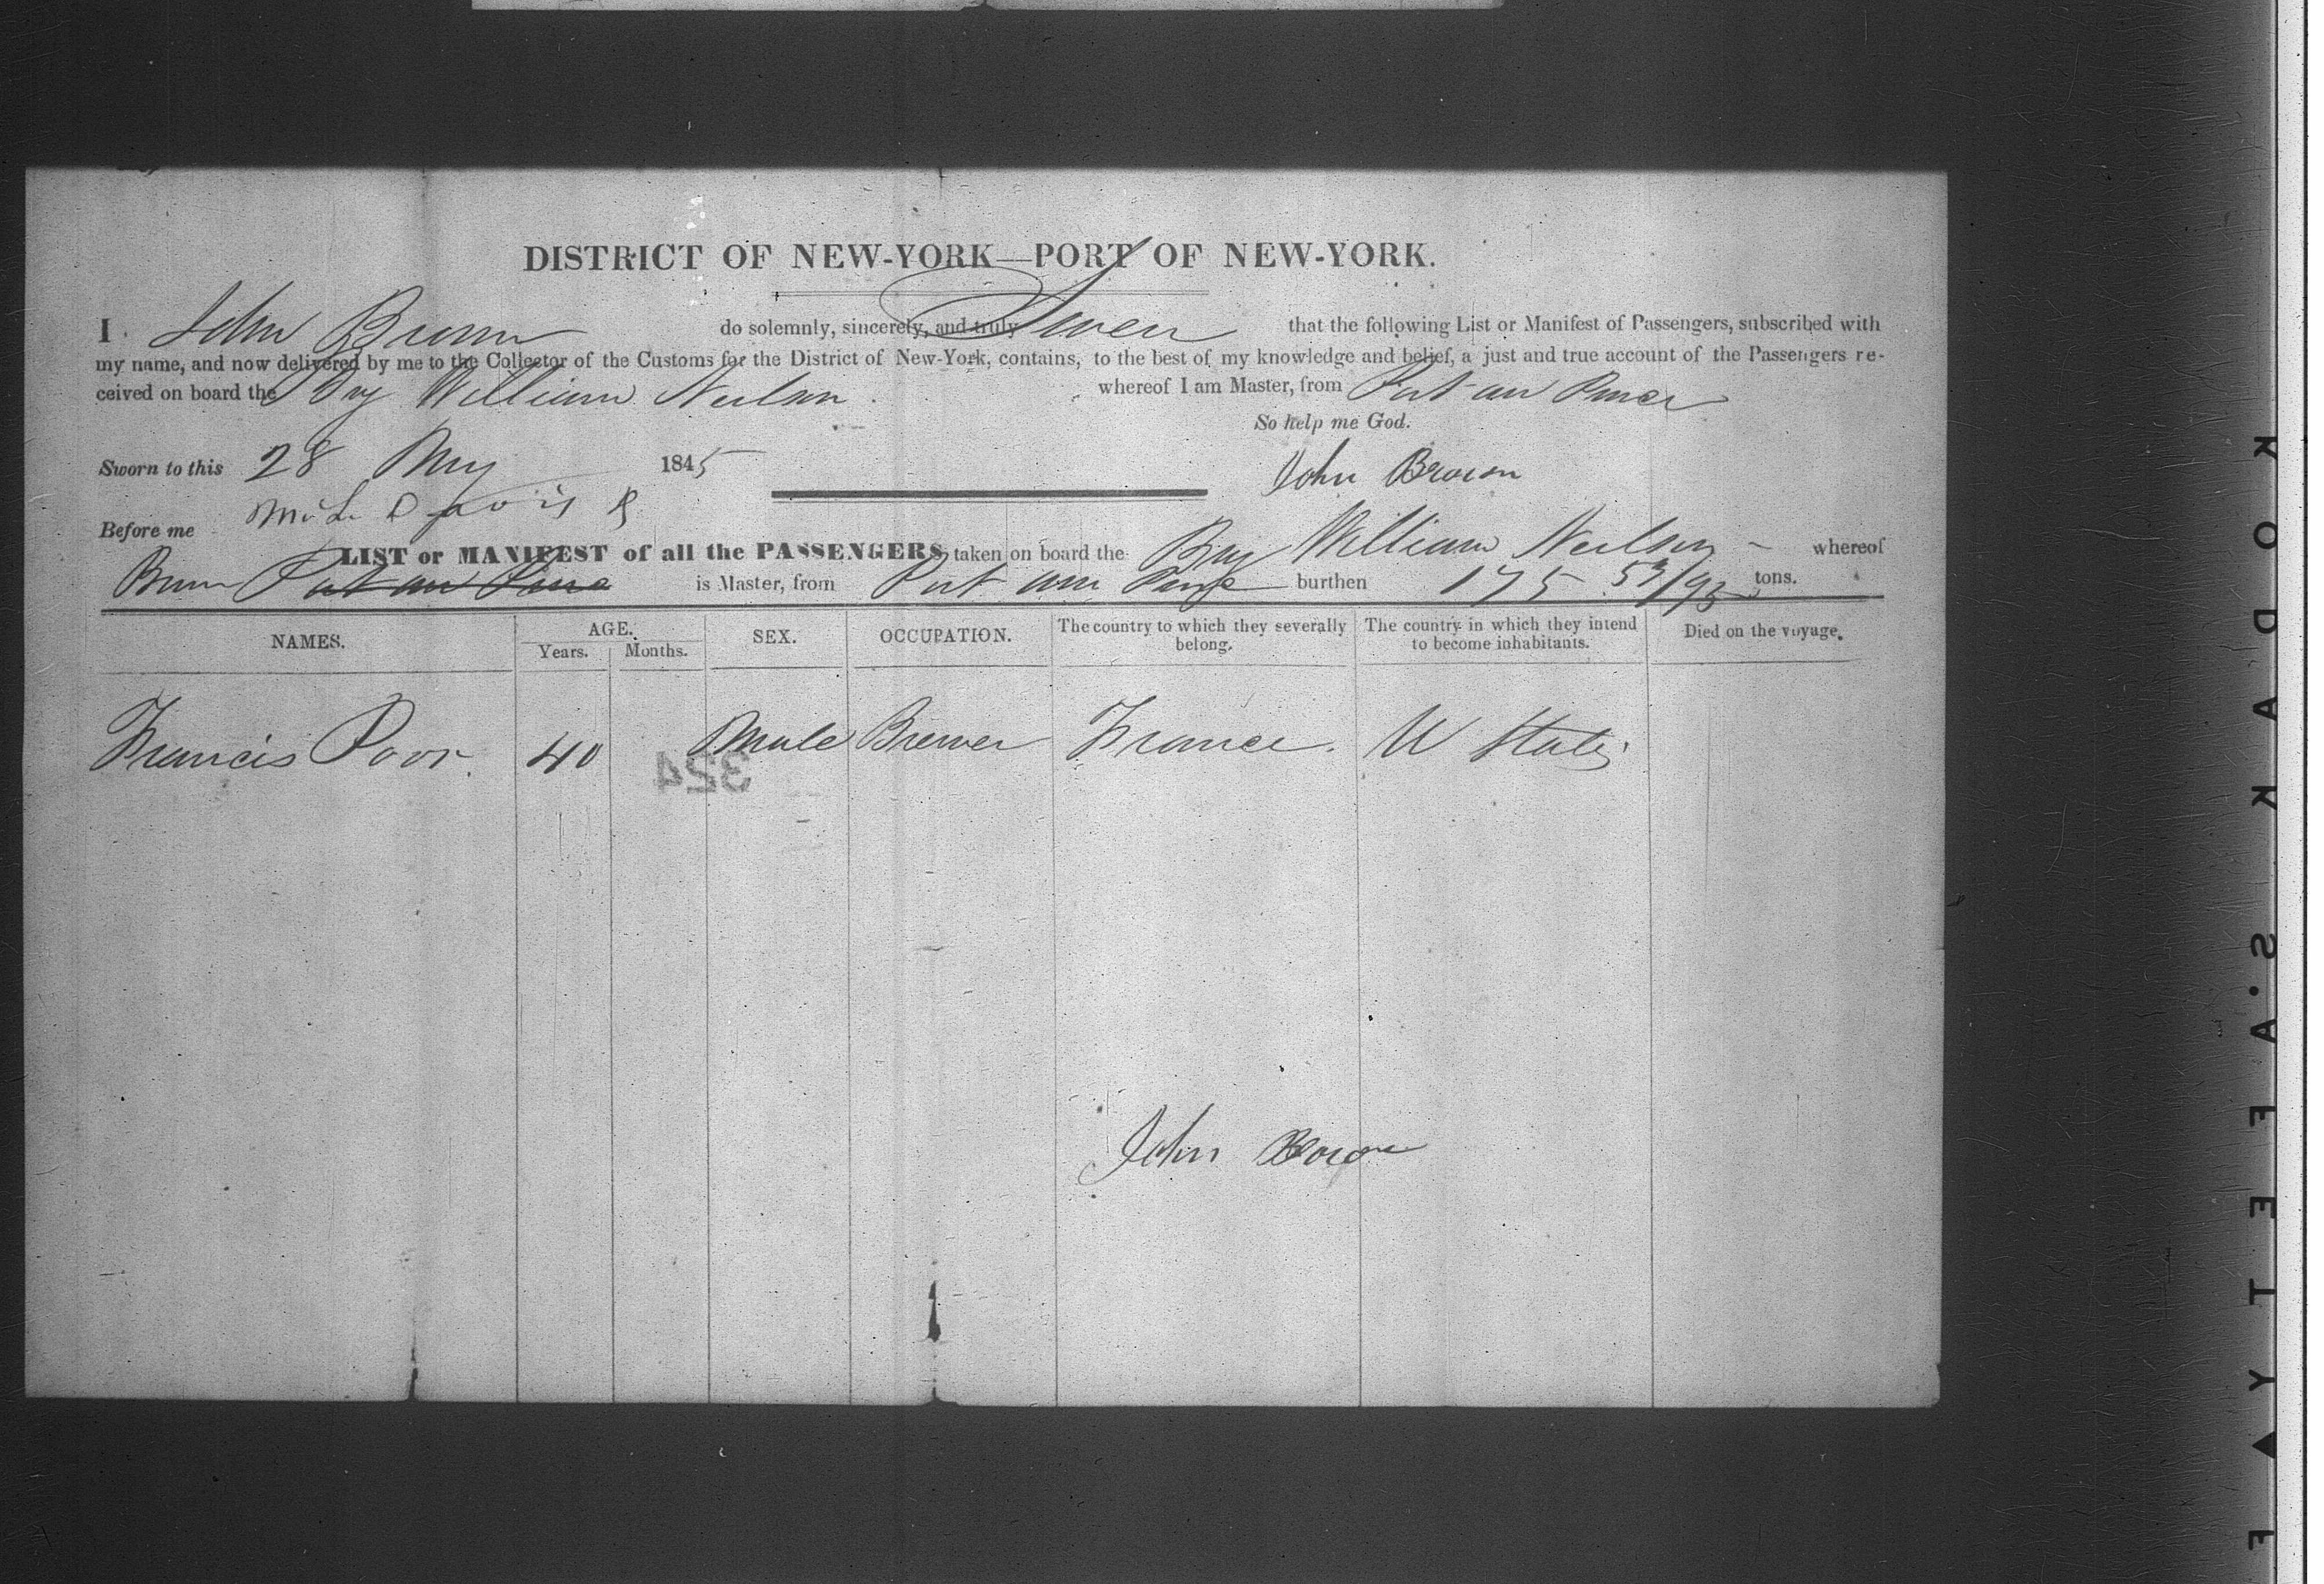 DISTRICT OF NEW-YORK—PORT OF NEW-YORK.
I John Brown do solemnly, sincerely, and truly Swear that the following List or Manifest of Passengers, subscribed with
my name, and now delivered by me to the Collector of the Customs for the District of New-York, contains, to the best of my knowledge and belief, a just and true account of the Passengers re-
ceived on board the Brig William Neilson whereof I am Master, from Port au Prince
So help me God.
Sworn to this 28 May 1845 John Brown
Before me
LIST or MANIFEST of all the PASSENGERS taken on board the Brig William Neilson whereof
Brown Port au Prince is Master, from Port au Prince burthen 175 tons.
NAMES. AGE. SEX. OCCUPATION. The country to which they severally belong. The country in which they intend to become inhabitants. Died on the voyage.
Years. Months.
Francis Poor. 40 Male Brewer France. U States
324
John Brown
KODAK S.AFETY ▲ F